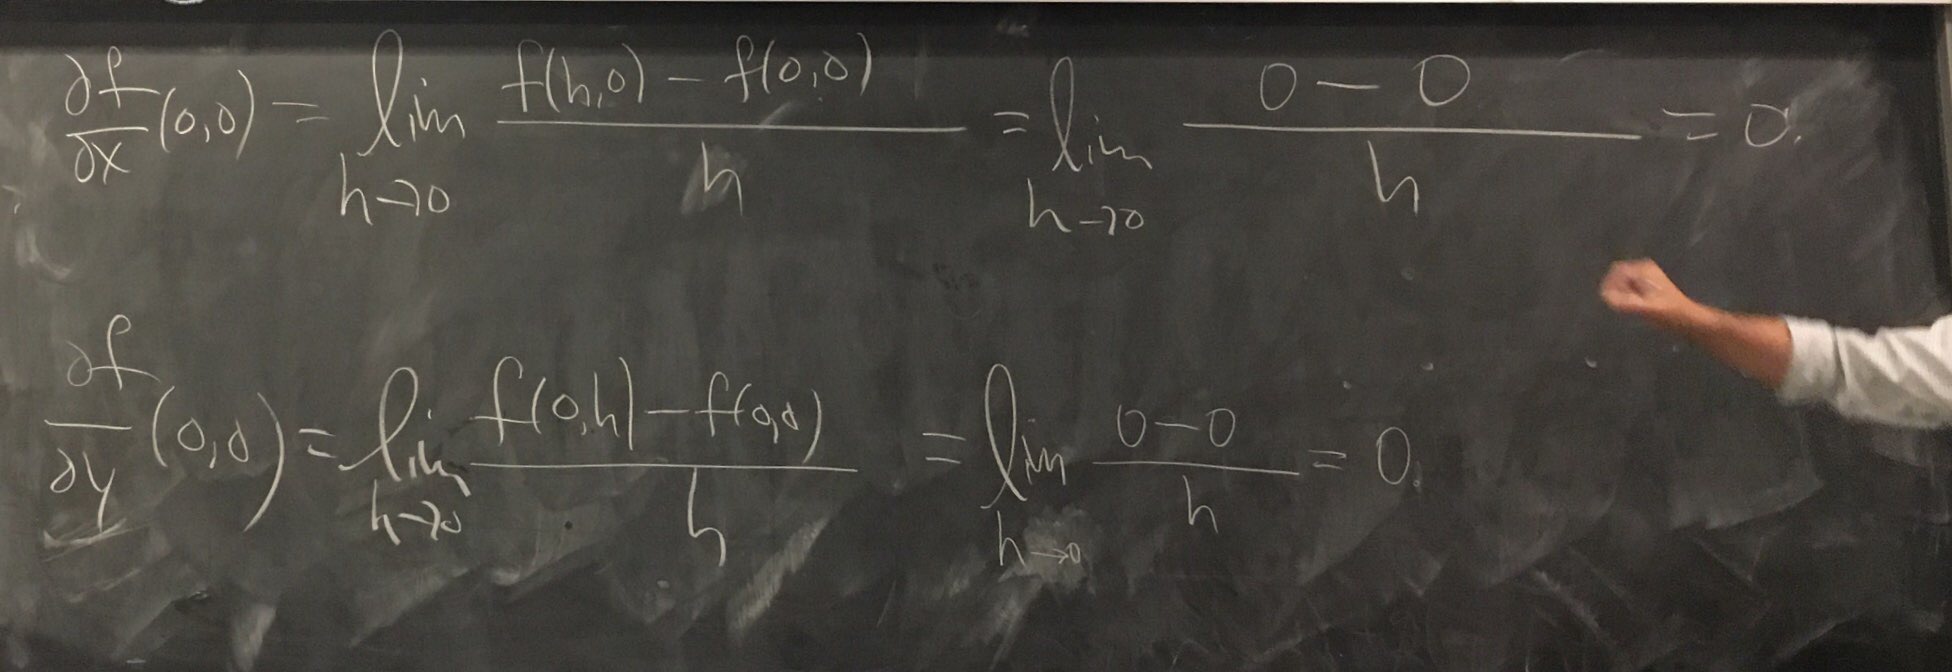 ∂f/∂x (0,0) = lim h→0 f(h,0) - f(0,0) / h = lim h→0 0 - 0 / h = 0.
∂f/∂y (0,0) = lim h→0 f(0,h) - f(0,0) / h = lim h→0 0 - 0 / h = 0.